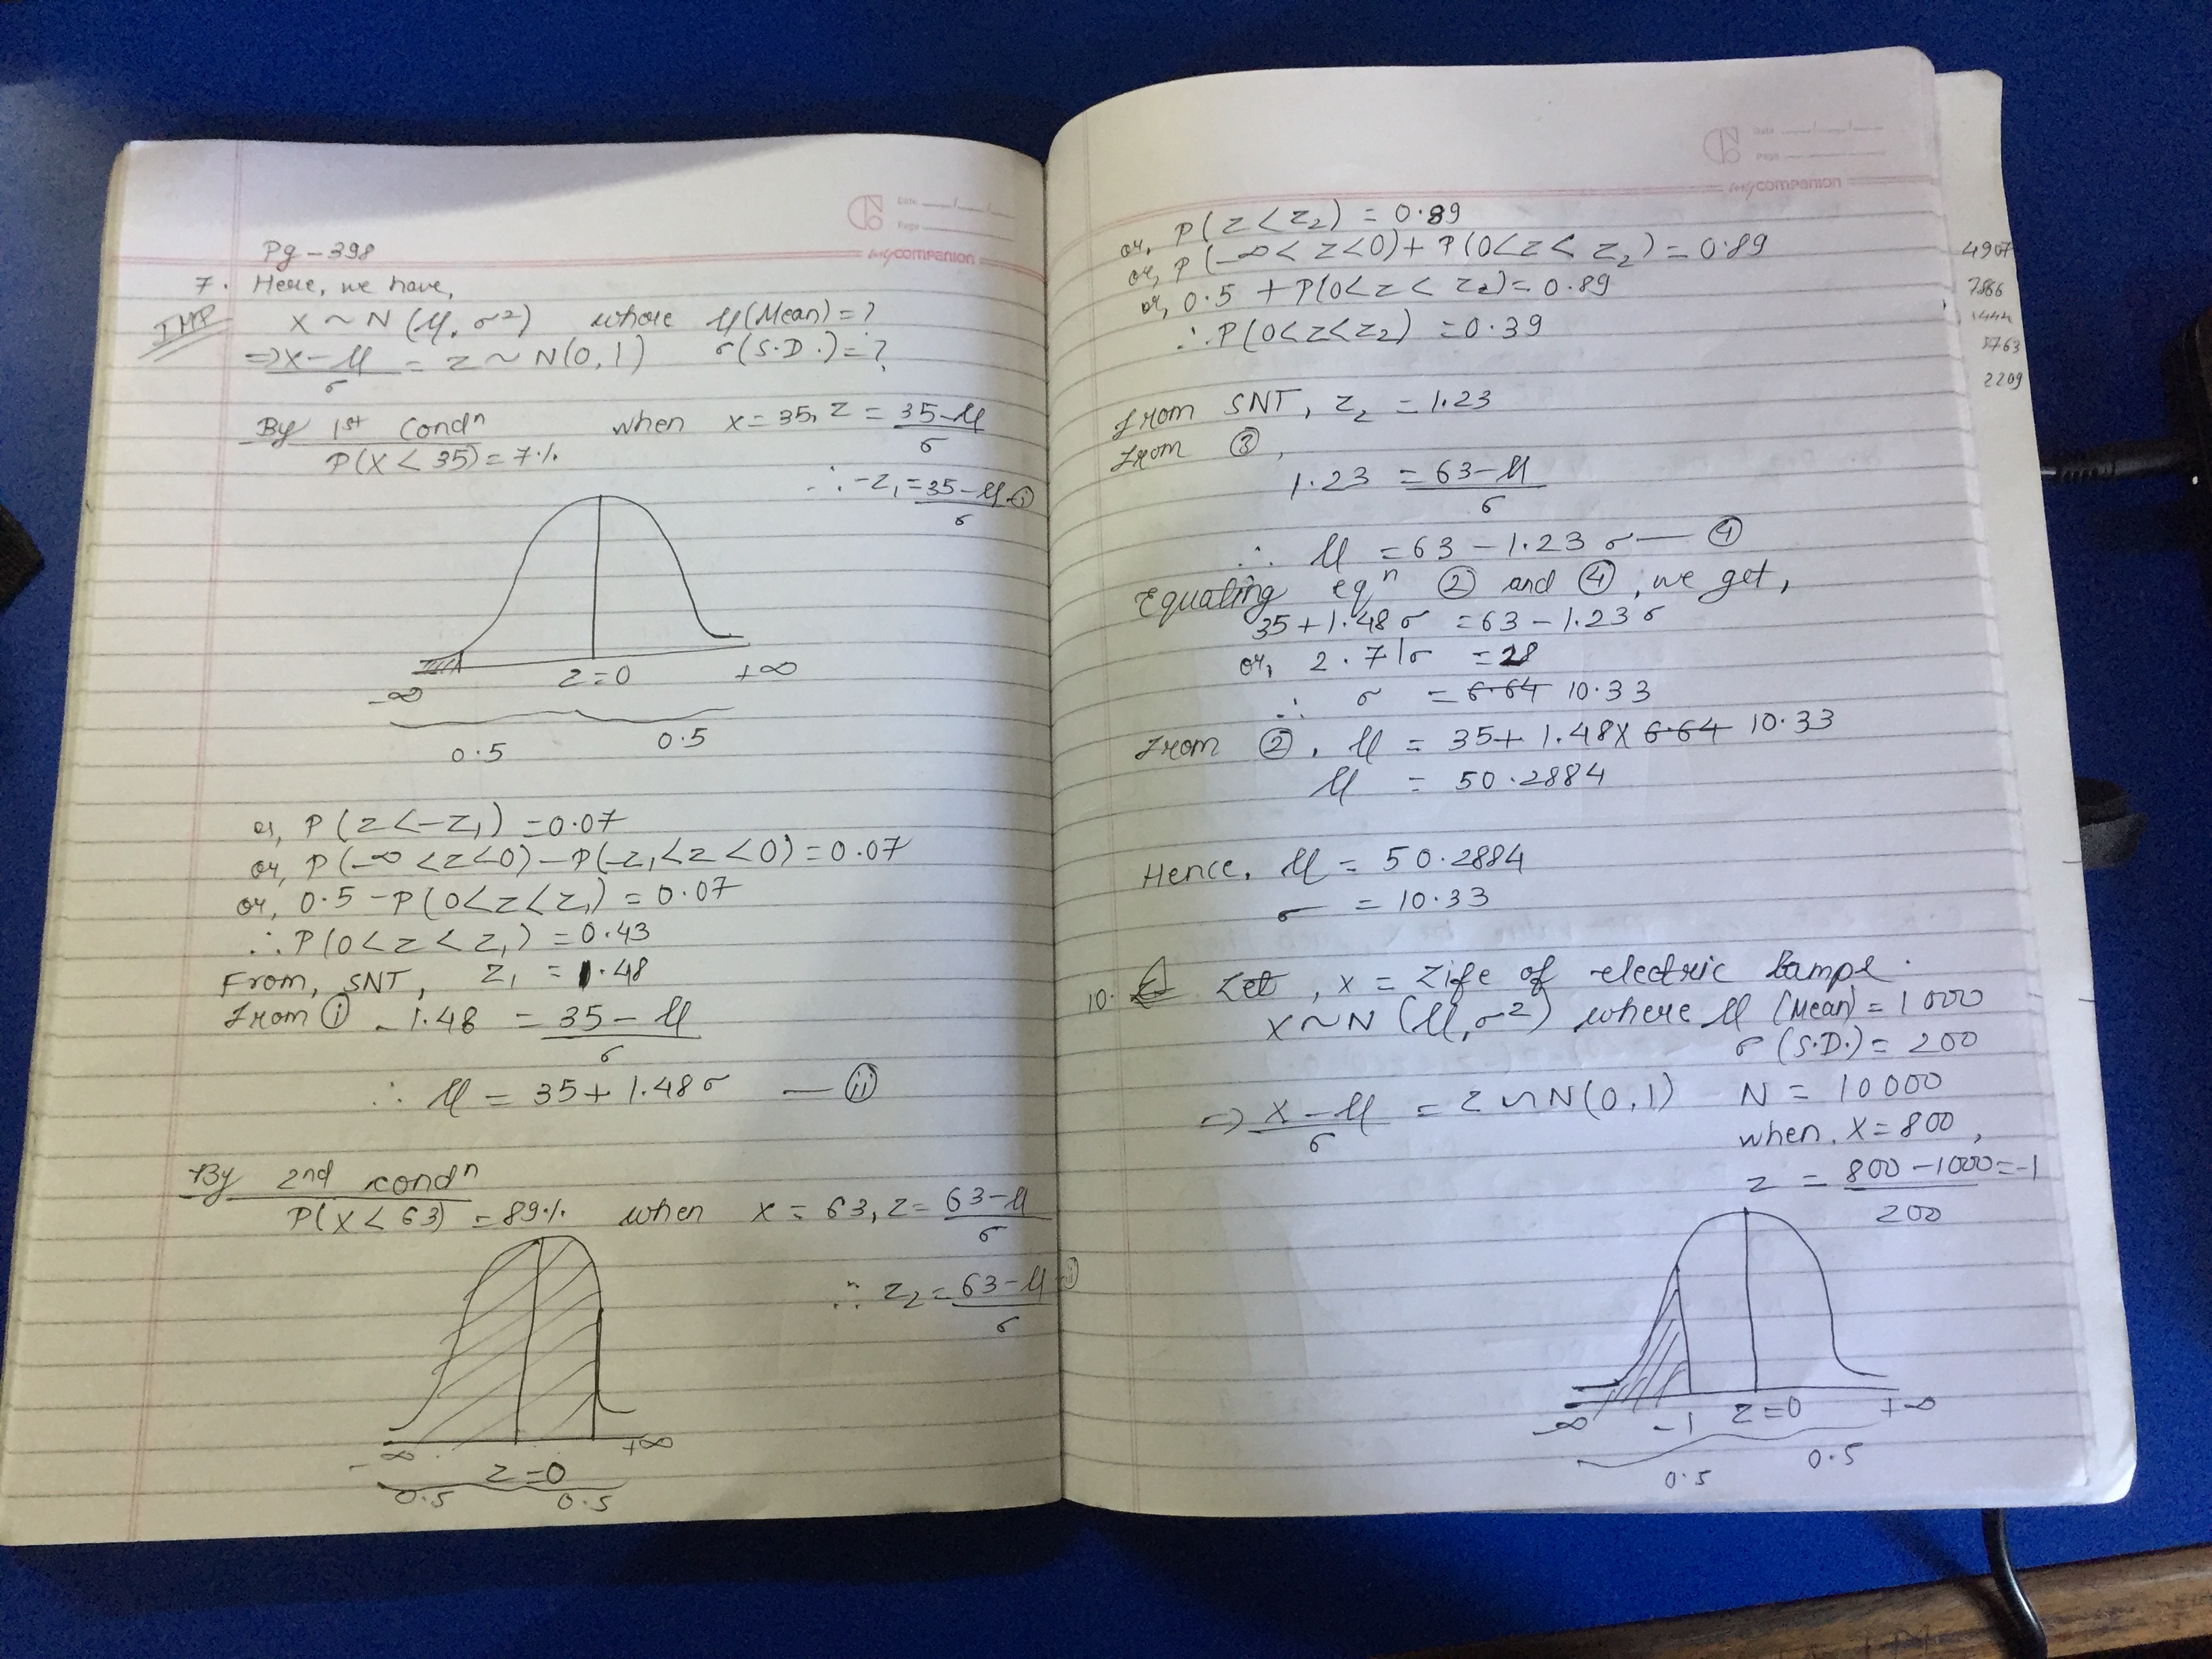 Date
Page
mycompanion
Pg - 398
7. Here, we have,
IMP
X ~ N (μ, σ²) where μ (Mean) = ?
⇒ X - μ / σ = Z ~ N(0, 1) σ (S.D.) = ?
By 1st Condⁿ when x = 35, Z = 35 - μ / σ
P(X < 35) = 7%
∴ -Z₁ = 35 - μ / σ (i)
-∞ Z = 0 +∞
0.5 0.5
or, P(Z < -Z₁) = 0.07
or, P(-∞ < Z < 0) - P(-Z₁ < Z < 0) = 0.07
or, 0.5 - P(0 < Z < Z₁) = 0.07
∴ P(0 < Z < Z₁) = 0.43
From, SNT, Z₁ = 1.48
From (i) -1.48 = 35 - μ / σ
∴ μ = 35 + 1.48 σ — (ii)
By 2nd condⁿ
P(X < 63) = 89% when x = 63, Z = 63 - μ / σ
∴ Z₂ = 63 - μ / σ
-∞ Z = 0 +∞
0.5 0.5
Date
Page
mycompanion
or, P(Z < Z₂) = 0.89
or, P(-∞ < Z < 0) + P(0 < Z < Z₂) = 0.89
or, 0.5 + P(0 < Z < Z₂) = 0.89
∴ P(0 < Z < Z₂) = 0.39
From SNT, Z₂ = 1.23
From ③,
1.23 = 63 - μ / σ
∴ μ = 63 - 1.23 σ — ④
Equating eqⁿ ② and ④, we get,
35 + 1.48 σ = 63 - 1.23 σ
or, 2.71 σ = 28
∴ σ = 6.64 10.33
From ②, μ = 35 + 1.48 X 6.64 10.33
μ = 50.2884
Hence, μ = 50.2884
σ = 10.33
10. Let, x = Life of electric lamps.
X ~ N (μ, σ²) where μ (Mean) = 1000
σ (S.D.) = 200
⇒ X - μ / σ = Z ~ N(0, 1) N = 10000
when, X = 800,
Z = 800 - 1000 / 200 = -1
-∞ -1 Z = 0 +∞
0.5 0.5
4907
1444
2209